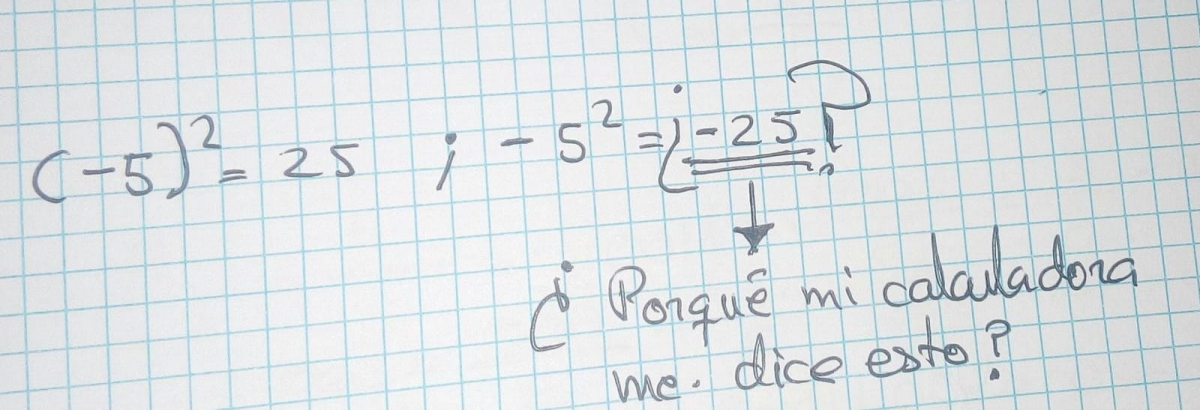 (-5)² = 25 ; -5² = ¿-25?
¿Porqué mi calculadora
me. dice esto?